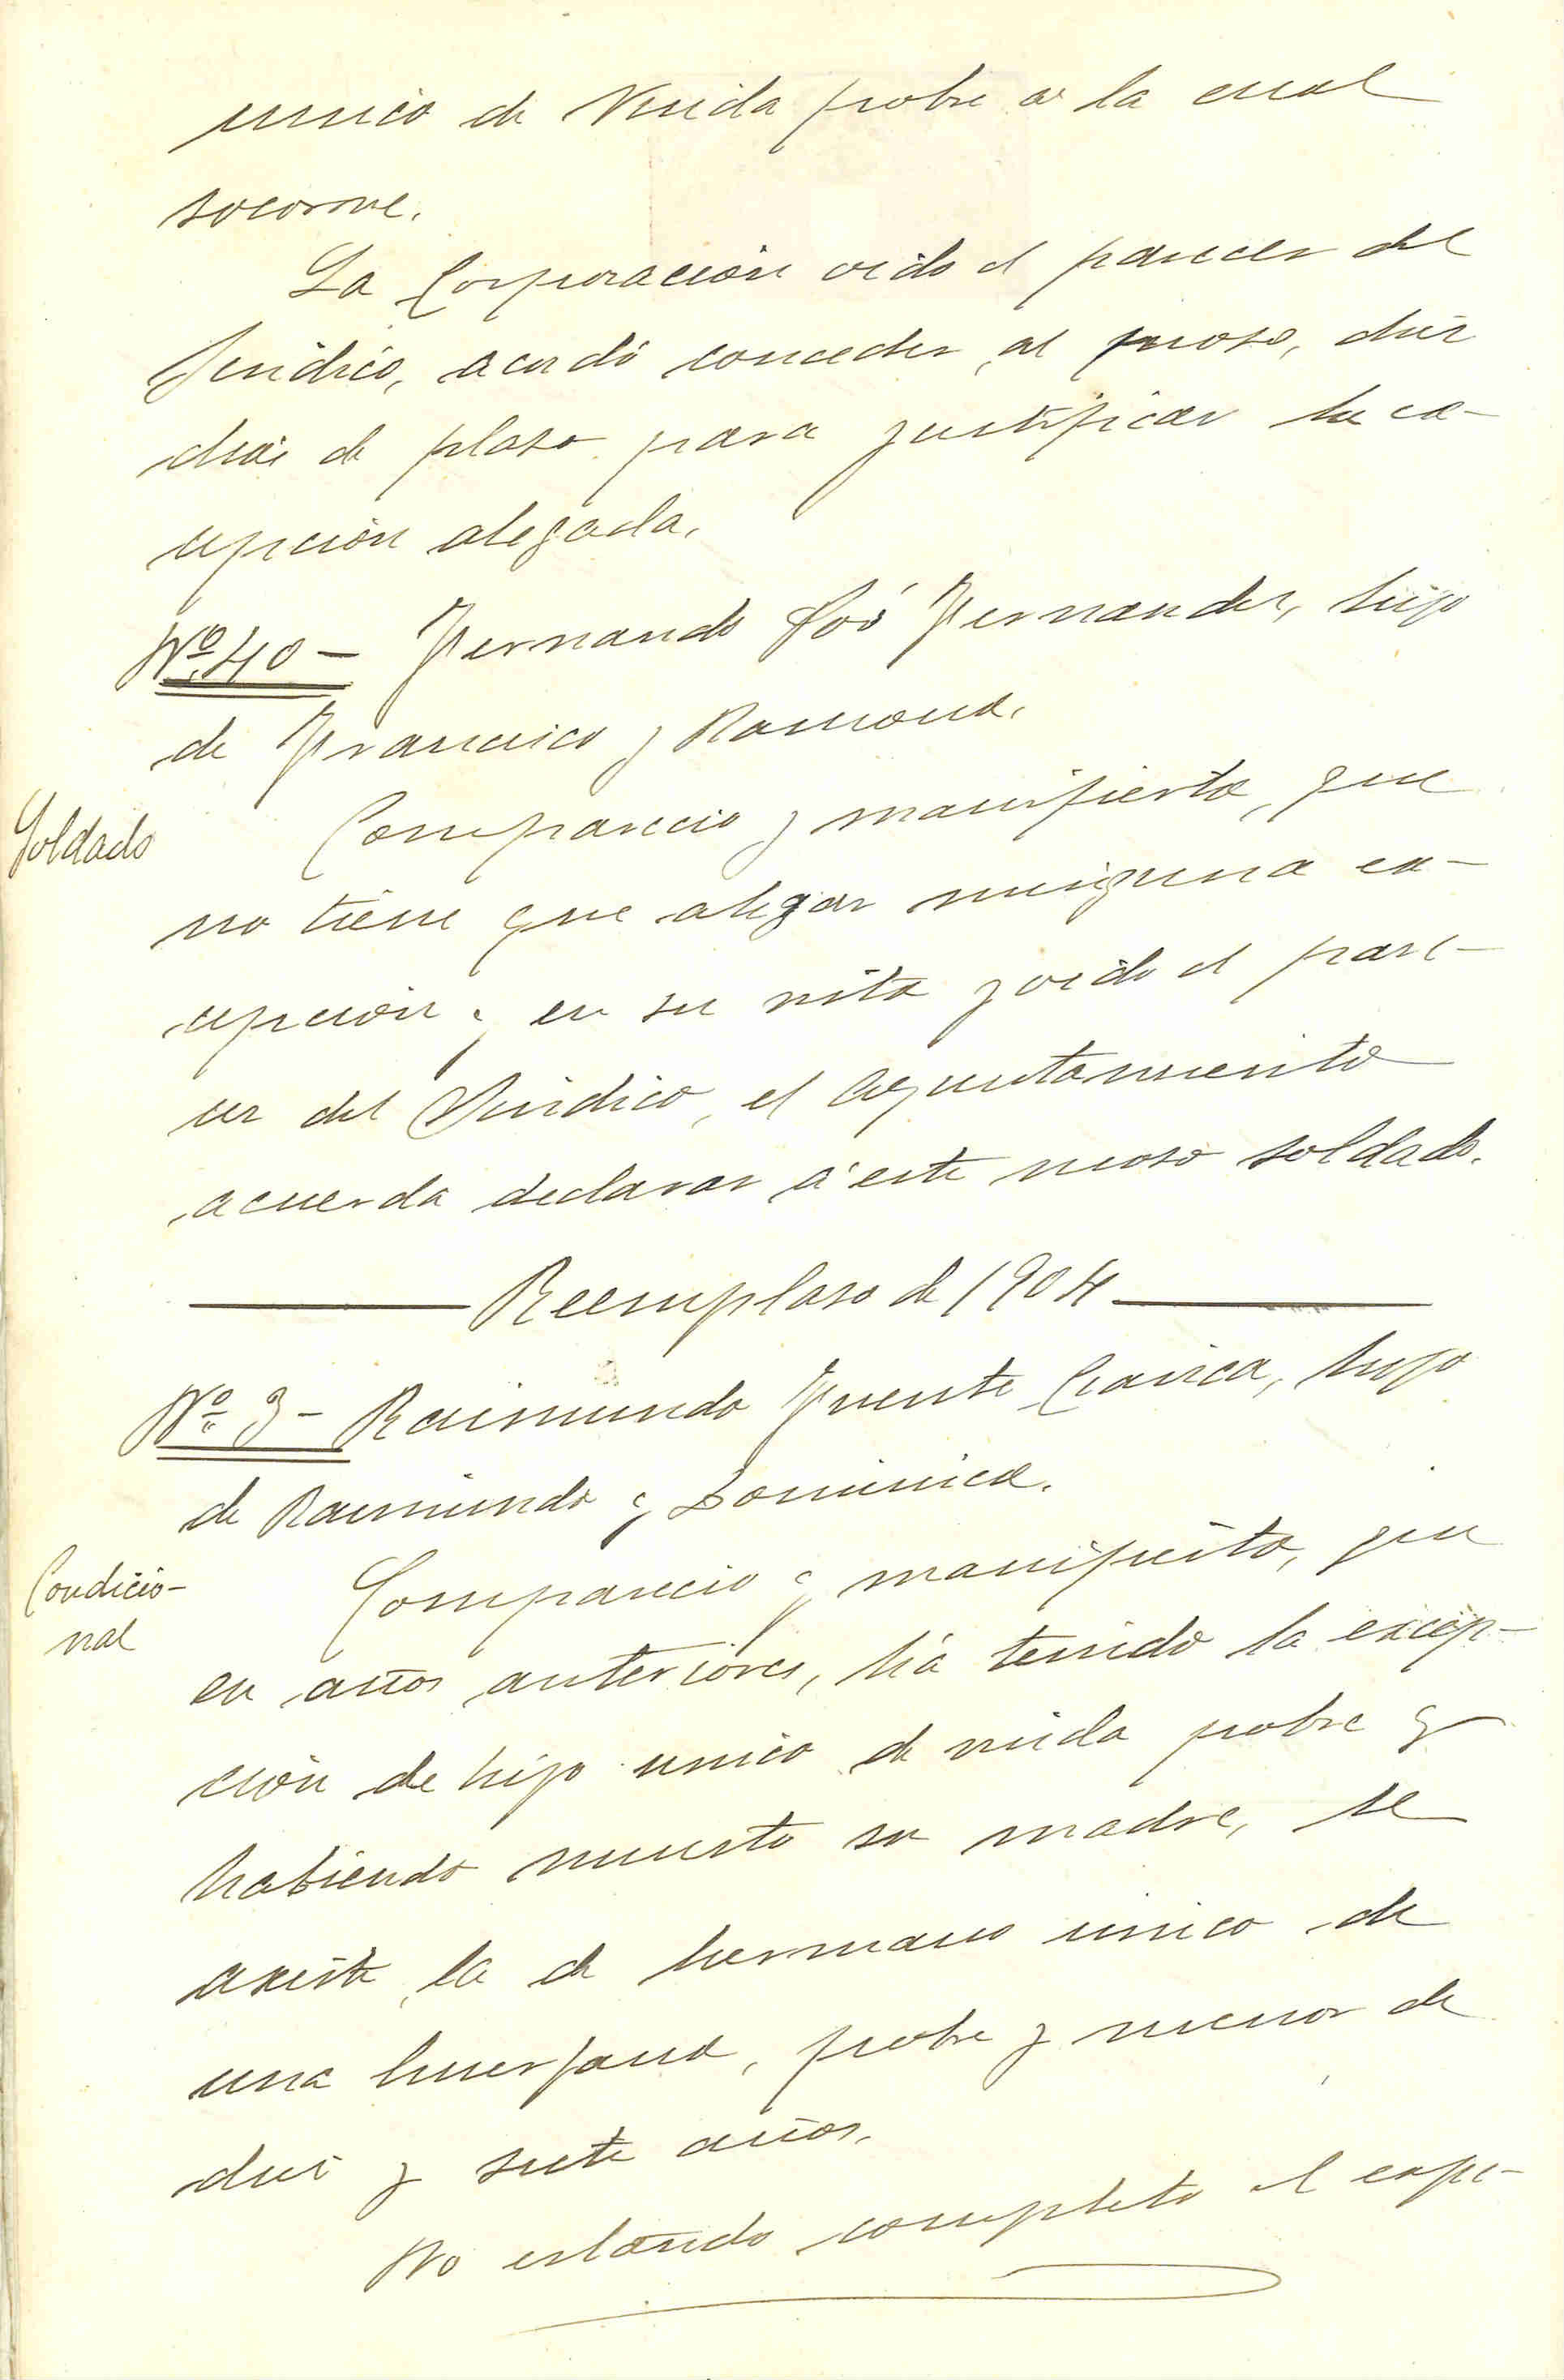 unico de Viuda pobre a la cual
socorre.
La Corporación oido el parecer del
Sindico, acordó conceder, al moso, diez
dias de plaso para justificar la ex-
cepción alegada.
Nº 40 - Fernando Fernandez, hijo
de Francisco y Ramona.
Soldado
Comparecio y manifiesta, que
no tiene que alegar ninguna ex-
cepción y en su vista y oido el pare-
cer del Sindico, el Ayuntamiento
acuerda declarar á este moso soldado.
Reemplaso de 1904
Nº 3 - Raimundo Fuente hijo
de Raimundo y Dominica.
Condicio-
nal
Comparecio y manifiesta, que
en años anteriores, há tenido la excep-
ción de hijo unico de viuda pobre y
habiendo muerto su madre, le
axiste la de hermano unico de
una huerfana, pobre y menor de
diez y siete años.
No estando completo el expe-